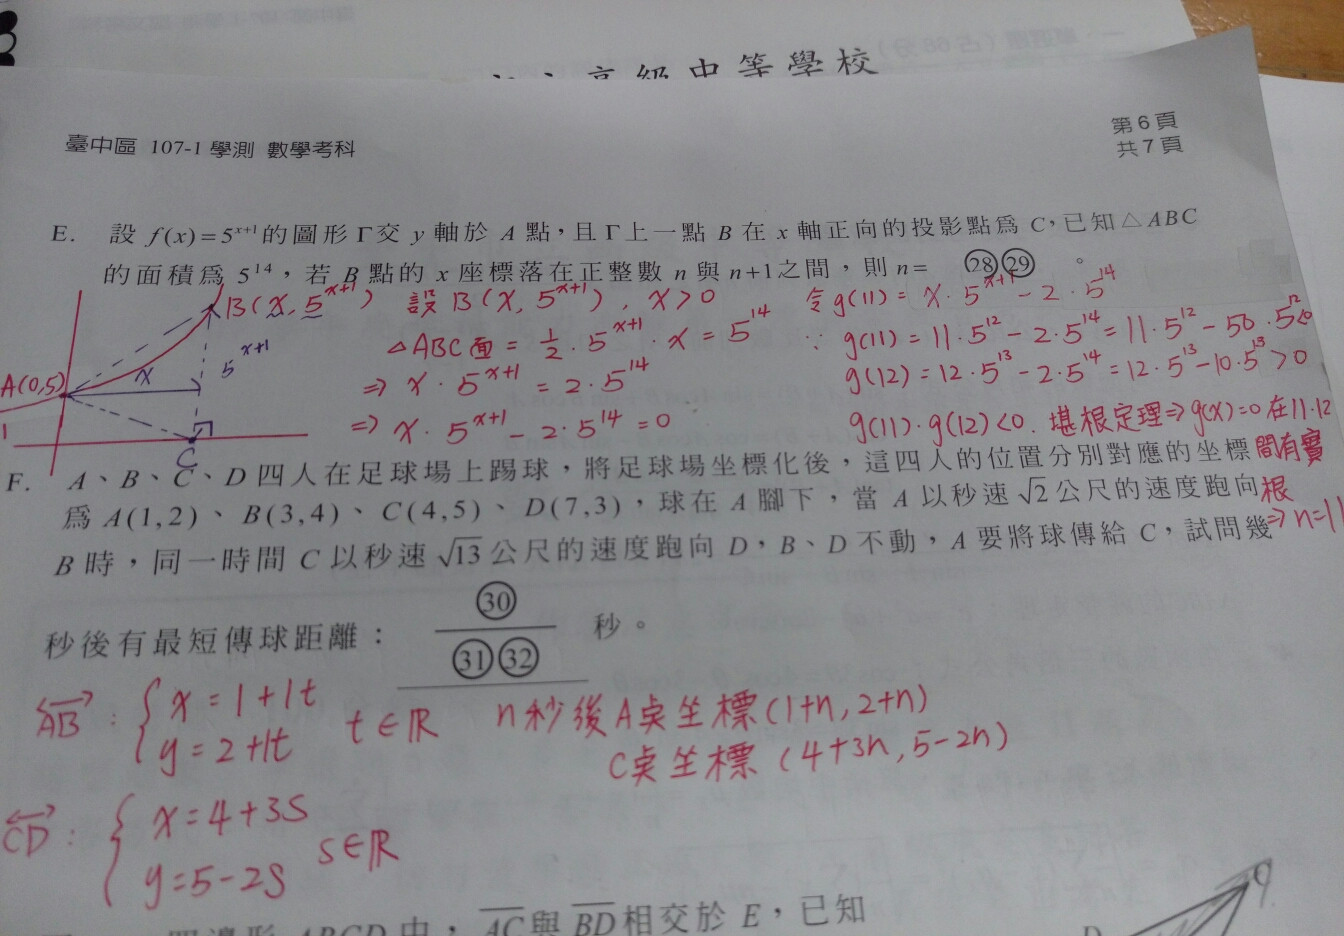 高級中等學校
臺中區 107-1 學測 數學考科
第 6 頁
共 7 頁
E. 設 f(x)=5^{x+1} 的圖形 Γ 交 y 軸於 A 點，且 Γ 上一點 B 在 x 軸正向的投影點為 C，已知 △ABC
的面積為 5^{14}，若 B 點的 x 座標落在正整數 n 與 n+1 之間，則 n= ㉘㉙ 。
B(x, 5^{x+1})
5^{x+1}
x
A(0,5)
1
C
設 B(x, 5^{x+1}), x>0
△ABC面 = 1/2 · 5^{x+1} · x = 5^{14}
⇒ x · 5^{x+1} = 2 · 5^{14}
⇒ x · 5^{x+1} − 2 · 5^{14} = 0
令 g(11) = x · 5^{x+1} − 2 · 5^{14}
∵ g(11) = 11 · 5^{12} − 2 · 5^{14} = 11 · 5^{12} − 50 · 5^{12} < 0
g(12) = 12 · 5^{13} − 2 · 5^{14} = 12 · 5^{13} − 10 · 5^{13} > 0
g(11) · g(12) < 0. 堪根定理 ⇒ g(x) = 0 在 11.12
間有實
根
⇒ n=11
F. A、B、C、D 四人在足球場上踢球，將足球場坐標化後，這四人的位置分別對應的坐標
為 A(1,2)、B(3,4)、C(4,5)、D(7,3)，球在 A 腳下，當 A 以秒速 √2 公尺的速度跑向
B 時，同一時間 C 以秒速 √13 公尺的速度跑向 D，B、D 不動，A 要將球傳給 C，試問幾
秒後有最短傳球距離： ㉚/㉛㉜ 秒。
AB : { x = 1+1t
y = 2+1t t∈R
n秒後A奌坐標(1+n, 2+n)
C奌坐標 (4+3n, 5-2n)
CD : { x=4+3s
y=5-2s s∈R
四邊形 ABCD 中，AC 與 BD 相交於 E，已知
D